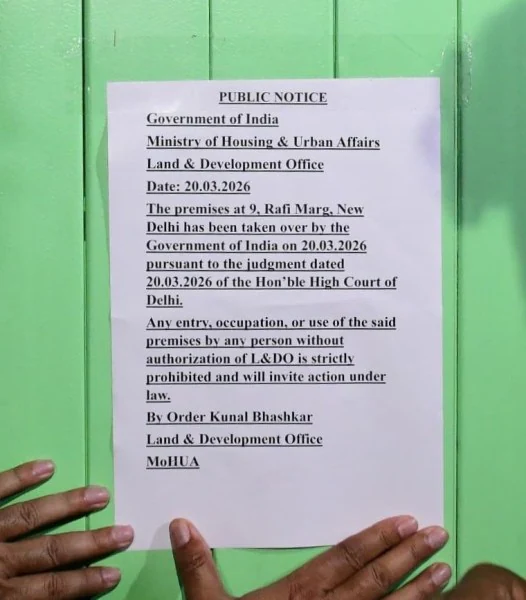 PUBLIC NOTICE
Government of India
Ministry of Housing & Urban Affairs
Land & Development Office
Date: 20.03.2026
The premises at 9, Rafi Marg, New
Delhi has been taken over by the
Government of India on 20.03.2026
pursuant to the judgment dated
20.03.2026 of the Hon’ble High Court of
Delhi.
Any entry, occupation, or use of the said
premises by any person without
authorization of L&DO is strictly
prohibited and will invite action under
law.
By Order Kunal Bhashkar
Land & Development Office
MoHUA